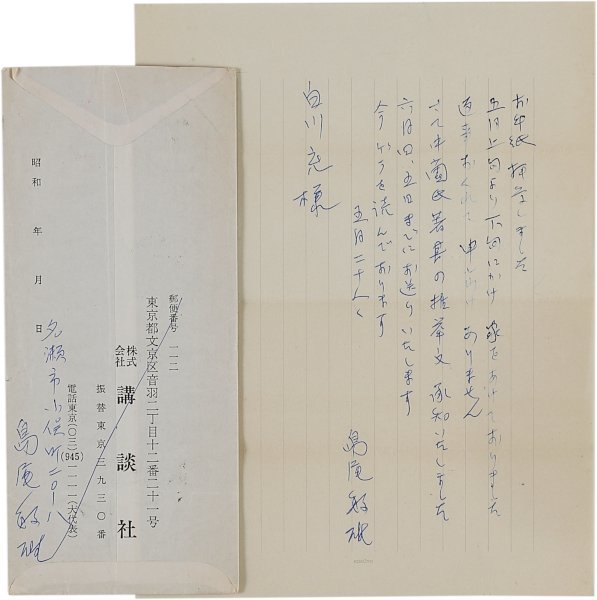 お手紙拝受しました
五月上旬より下旬にかけ 家をあけておりました
返事おくれて申しわけありません
さて中薗氏著書の推挙文承知いたしました
六月四、五日までにお送りいたします
今ゲラを読んでおります
五月二十八日
島尾敏雄
白川充様
郵便番号 一一二
東京都文京区音羽二丁目十二番二十一号
株式会社 講談社
振替東京三九三〇番
電話東京(〇三)(945)一一一一(大代表)
昭和 年 月 日
名瀬市小俣町二〇ー八
島尾敏雄